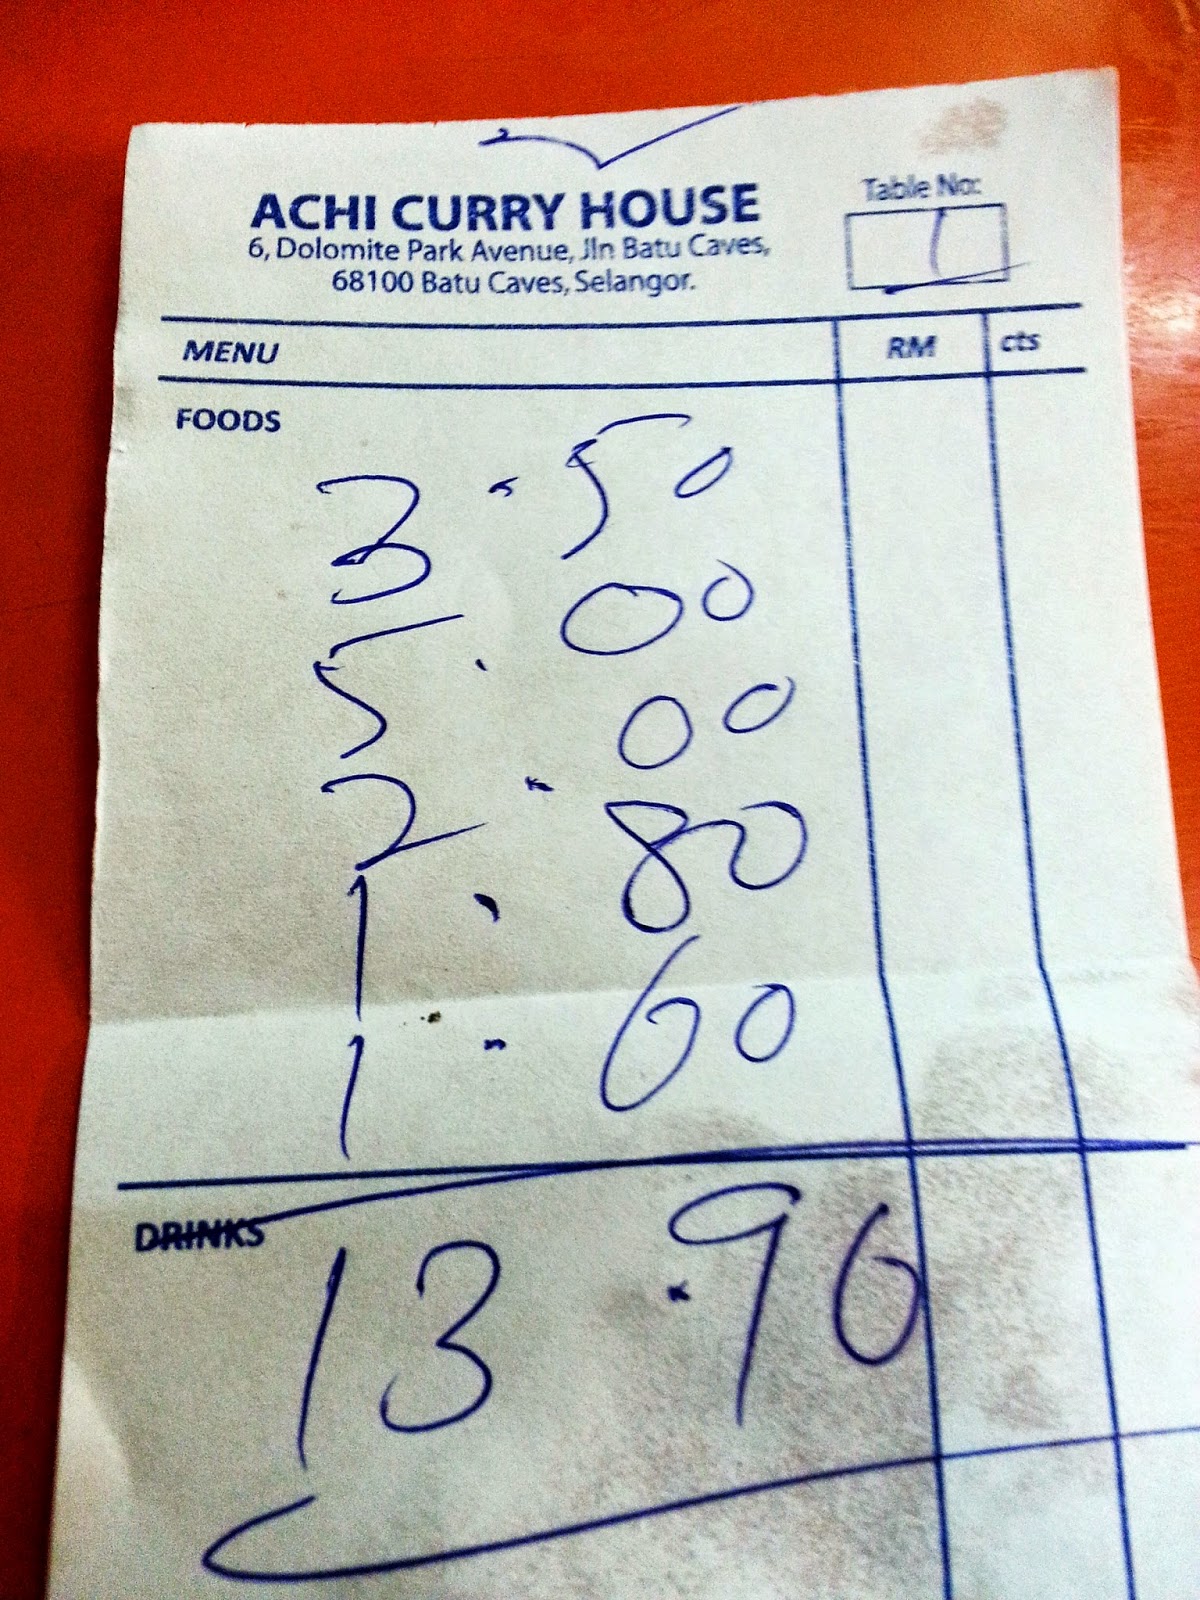 ACHI CURRY HOUSE
6, Dolomite Park Avenue, Jln Batu Caves,
68100 Batu Caves, Selangor.
Table No:
1
MENU RM cts
FOODS
3.50
5.00
2.00
1.80
1.60
DRINKS
13.90